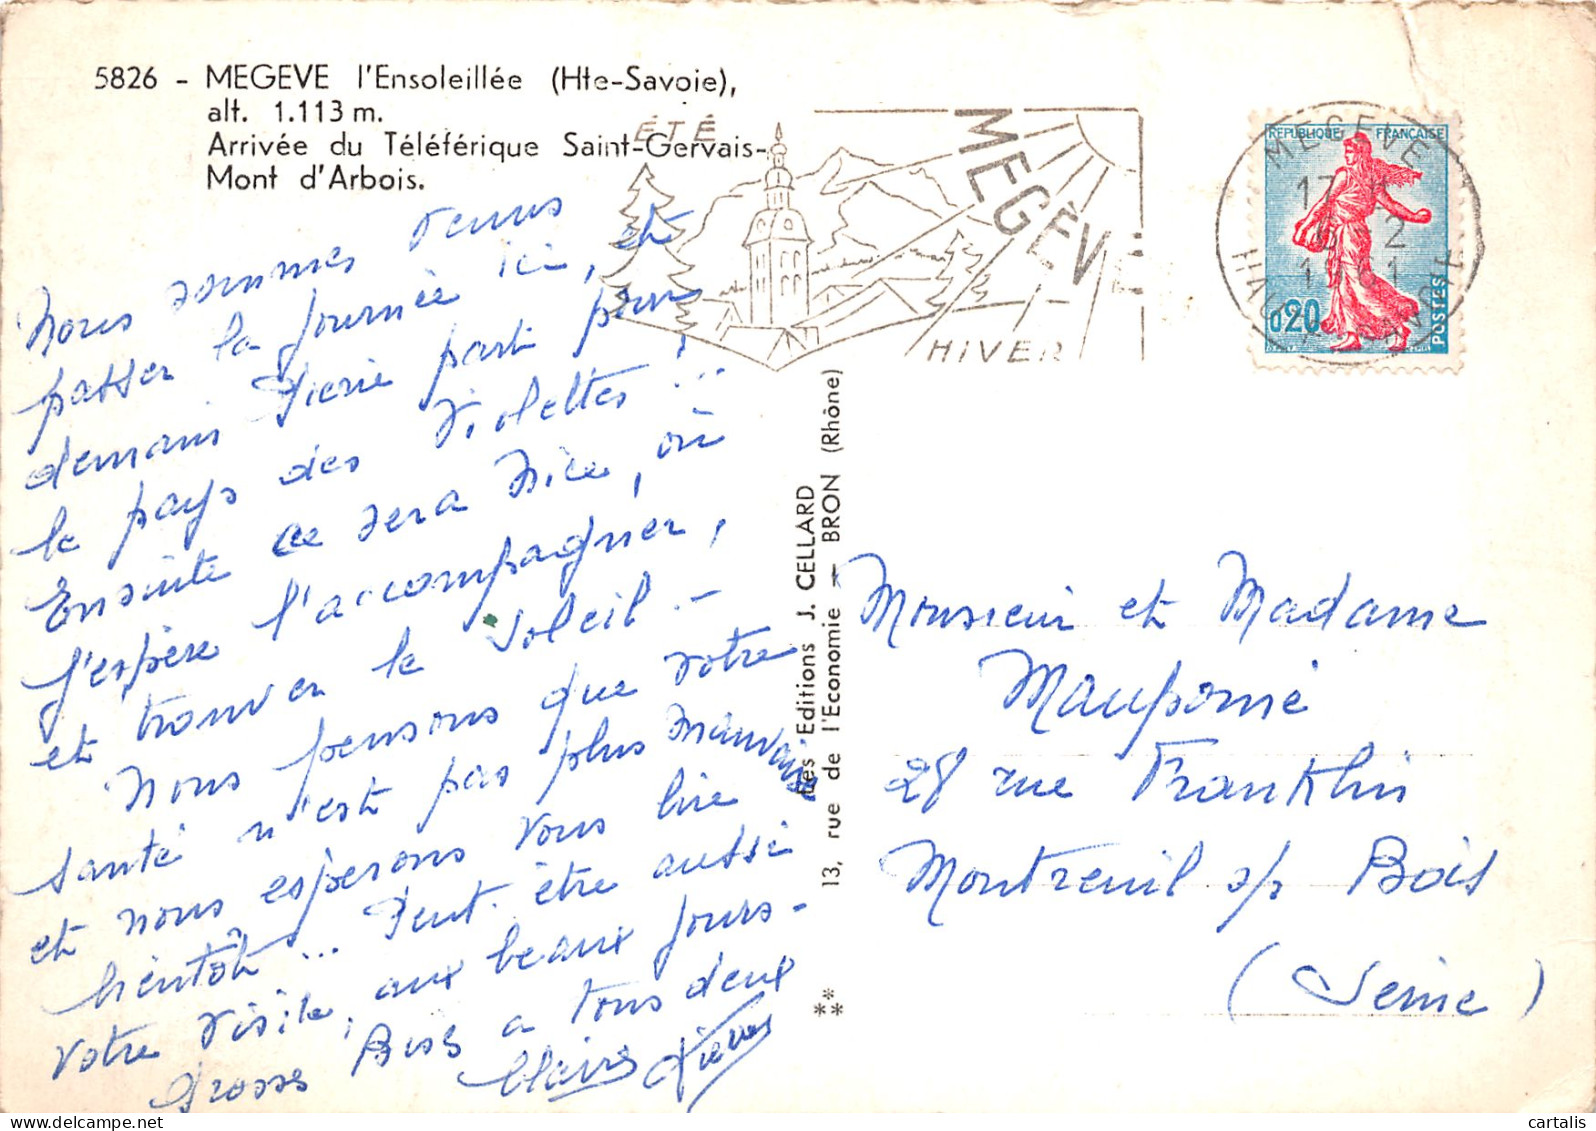 5826 - MEGEVE l'Ensoleillée (Hte-Savoie),
alt. 1.113 m.
Arrivée du Téléférique Saint-Gervais-
Mont d'Arbois.
ÉTÉ
MEGÈVE
HIVER
REPUBLIQUE FRANÇAISE
0,20
POSTES
MEGEVE
17 H
2
HAUTE-SAVOIE
Nous sommes venus
passer la journée ici, et
demain Pierre part pour
le pays des Violettes ...
Ensuite ce sera Nice, où
j'espère l'accompagner,
et trouver le soleil -
Nous pensons que votre
santé n'est pas plus mauvaise
et nous espérons vous lire
bientôt ... Peut-être aussi
votre visite, aux beaux jours -
Grosses Bises a tous deux
Claire Pierre
Les Editions J. CELLARD
13, rue de l'Economie - BRON (Rhône)
Monsieur et Madame
28 rue Franklin
Montreuil s/s Bois
(Seine)
cartalis
delcampe.net